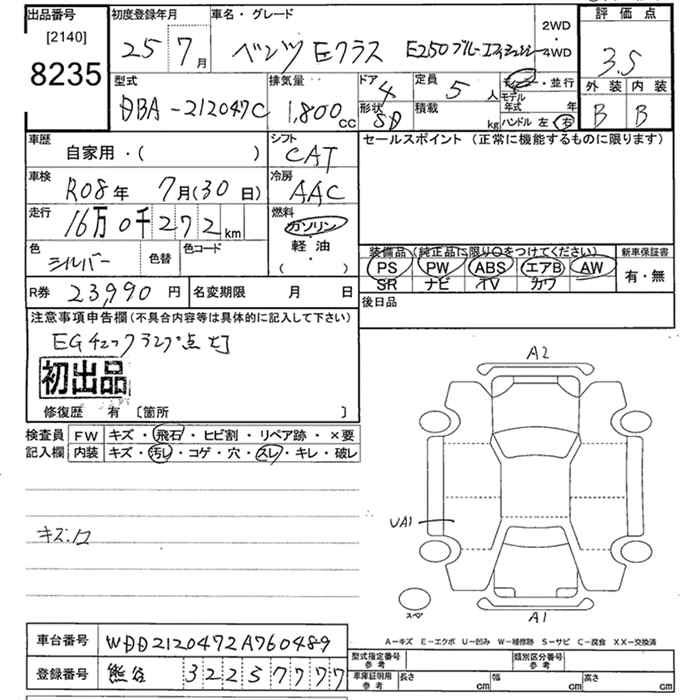 出品番号
[2140]
8235
初度登録年月
25年7月
車名・グレード
ベンツ Eクラス E250 ブルーエフィシェンシー
2WD
・
4WD
評価点
3.5
外装 内装
B B
型式
DBA-212047C
排気量
1,800cc
ドア
4
形状
SD
定員
5人
積載
kg
ディーラー・並行
モデル年式 年
ハンドル 左 右
車歴
自家用・( )
シフト
CAT
セールスポイント (正常に機能するものに限ります)
車検
R08年 7月(30日)
冷房
AAC
走行
16万0千272km
燃料
ガソリン
・
軽・油
( ・ )
色
シルバー
色替
色コード
装備品 (純正品に限り○をつけてください)
PS PW ABS エアB AW
SR ナビ TV カワ
新車保証書
有・無
R券 23,990円
名変期限 月 日
後日品
注意事項申告欄(不具合内容等は具体的に記入して下さい)
EGチェックランプ点灯
初出品
修復歴 有 〔箇所 〕
検査員記入欄
FW キズ・飛石・ヒビ割・リペア跡・×要
内装 キズ・汚レ・コゲ・穴・スレ・キレ・破レ
A2
UA1
A1
スペア
A-キズ E-エクボ U-凹み W-補修跡 S-サビ C-腐食 XX-交換済
車台番号 WDD2120472A760489
登録番号 熊谷 322 ち 7777
型式指定番号 参考
類別区分番号 参考
車庫証明用 参考 長さ cm 幅 cm 高さ cm